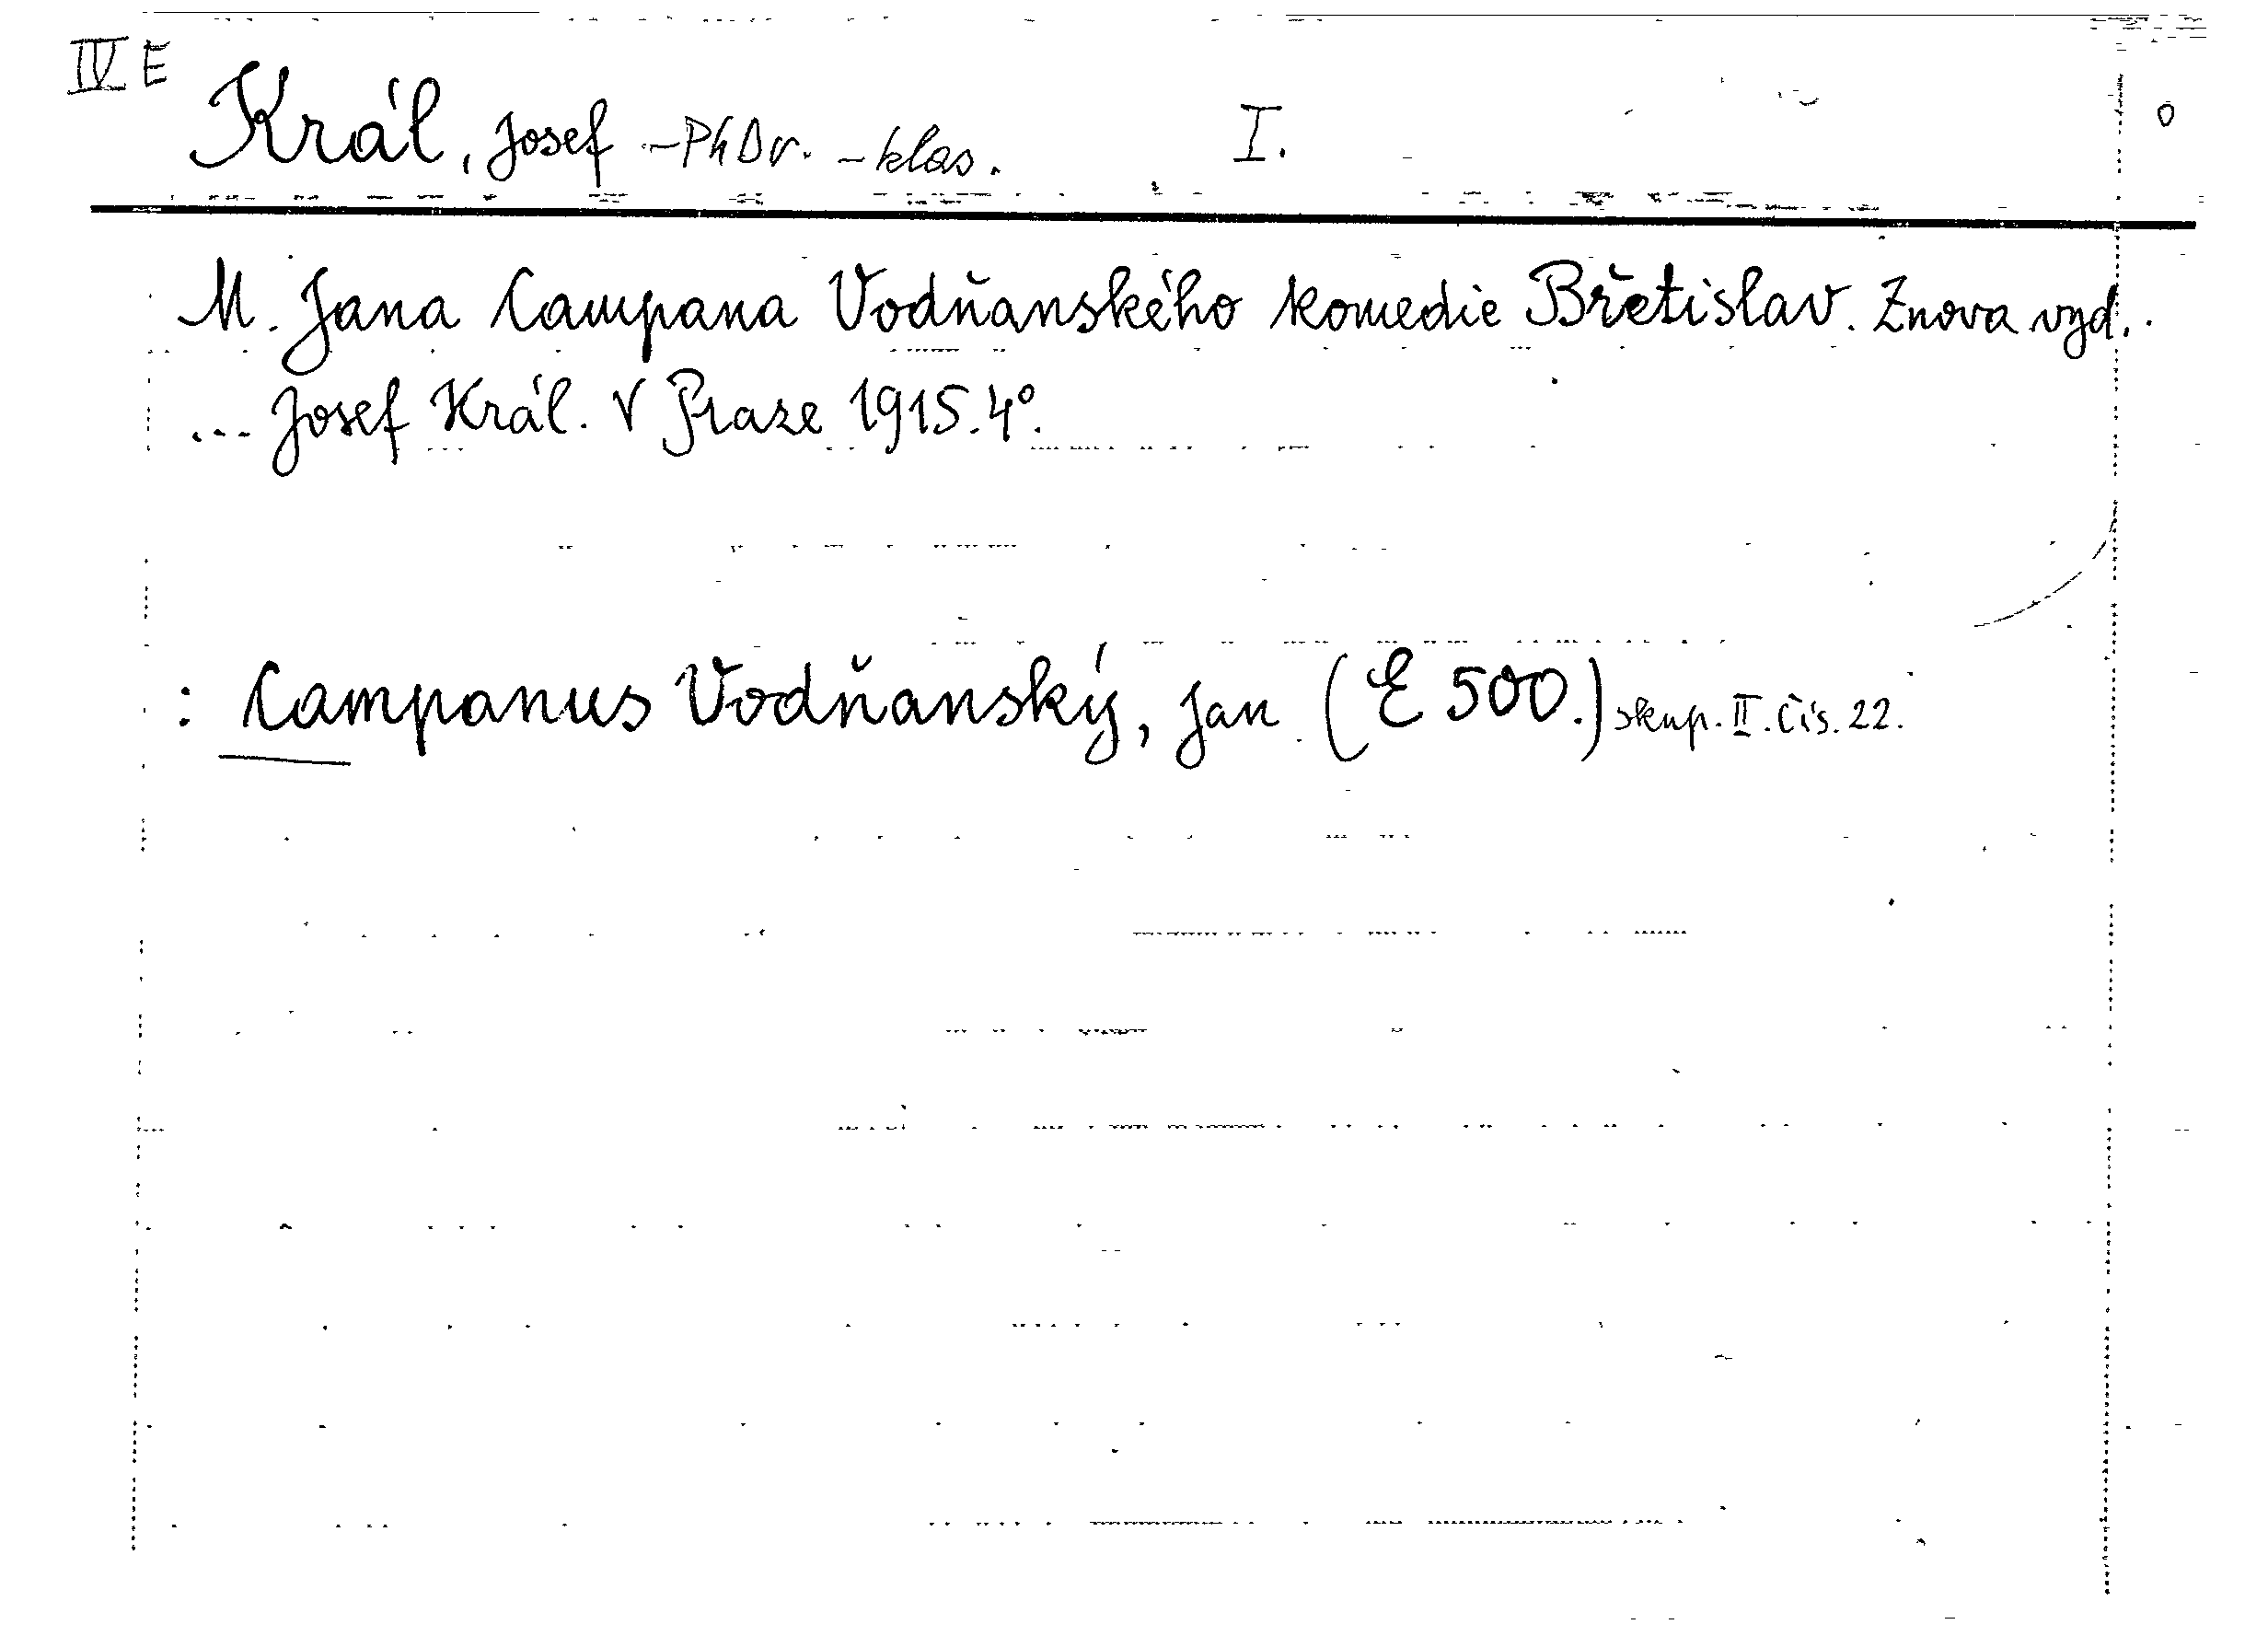 IV E
Král, Josef -PhDr. -klas. I.
M. Jana Campana Vodňanského komedie Břetislav. Znova vyd..
... Josef Král. V Praze 1915. 4°.
: Campanus Vodňanský, Jan (E 500.) skup. II. čís. 22.